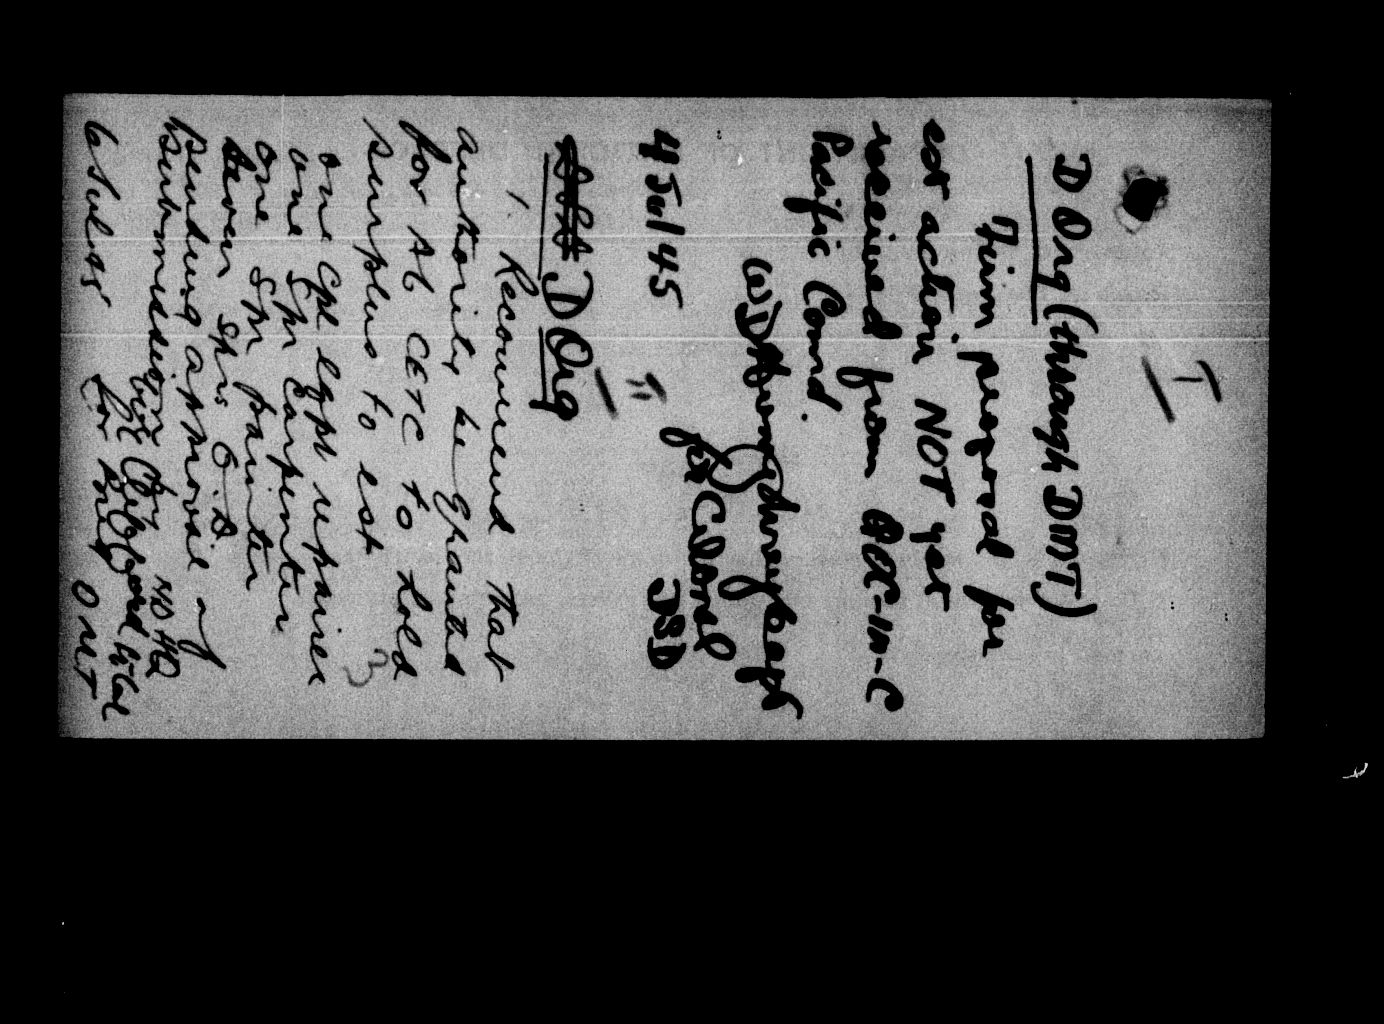 - I -
D Org (through DMT)
Firm proposal for
est action NOT yet
received from GOC-in-C
Pacific Comd.
for Colonel
DSD
4 Jul 45
- II -
D Org
1 Recommend that
authority be granted
for A6 CETC to hold
surplus to est
3
one Cpl eqpt repairer
one Spr carpenter
one Spr painter
seven Sprs G.D
pending approval of
submission
NDHQ
Lt-Col
6 Jul 45
for
DMT